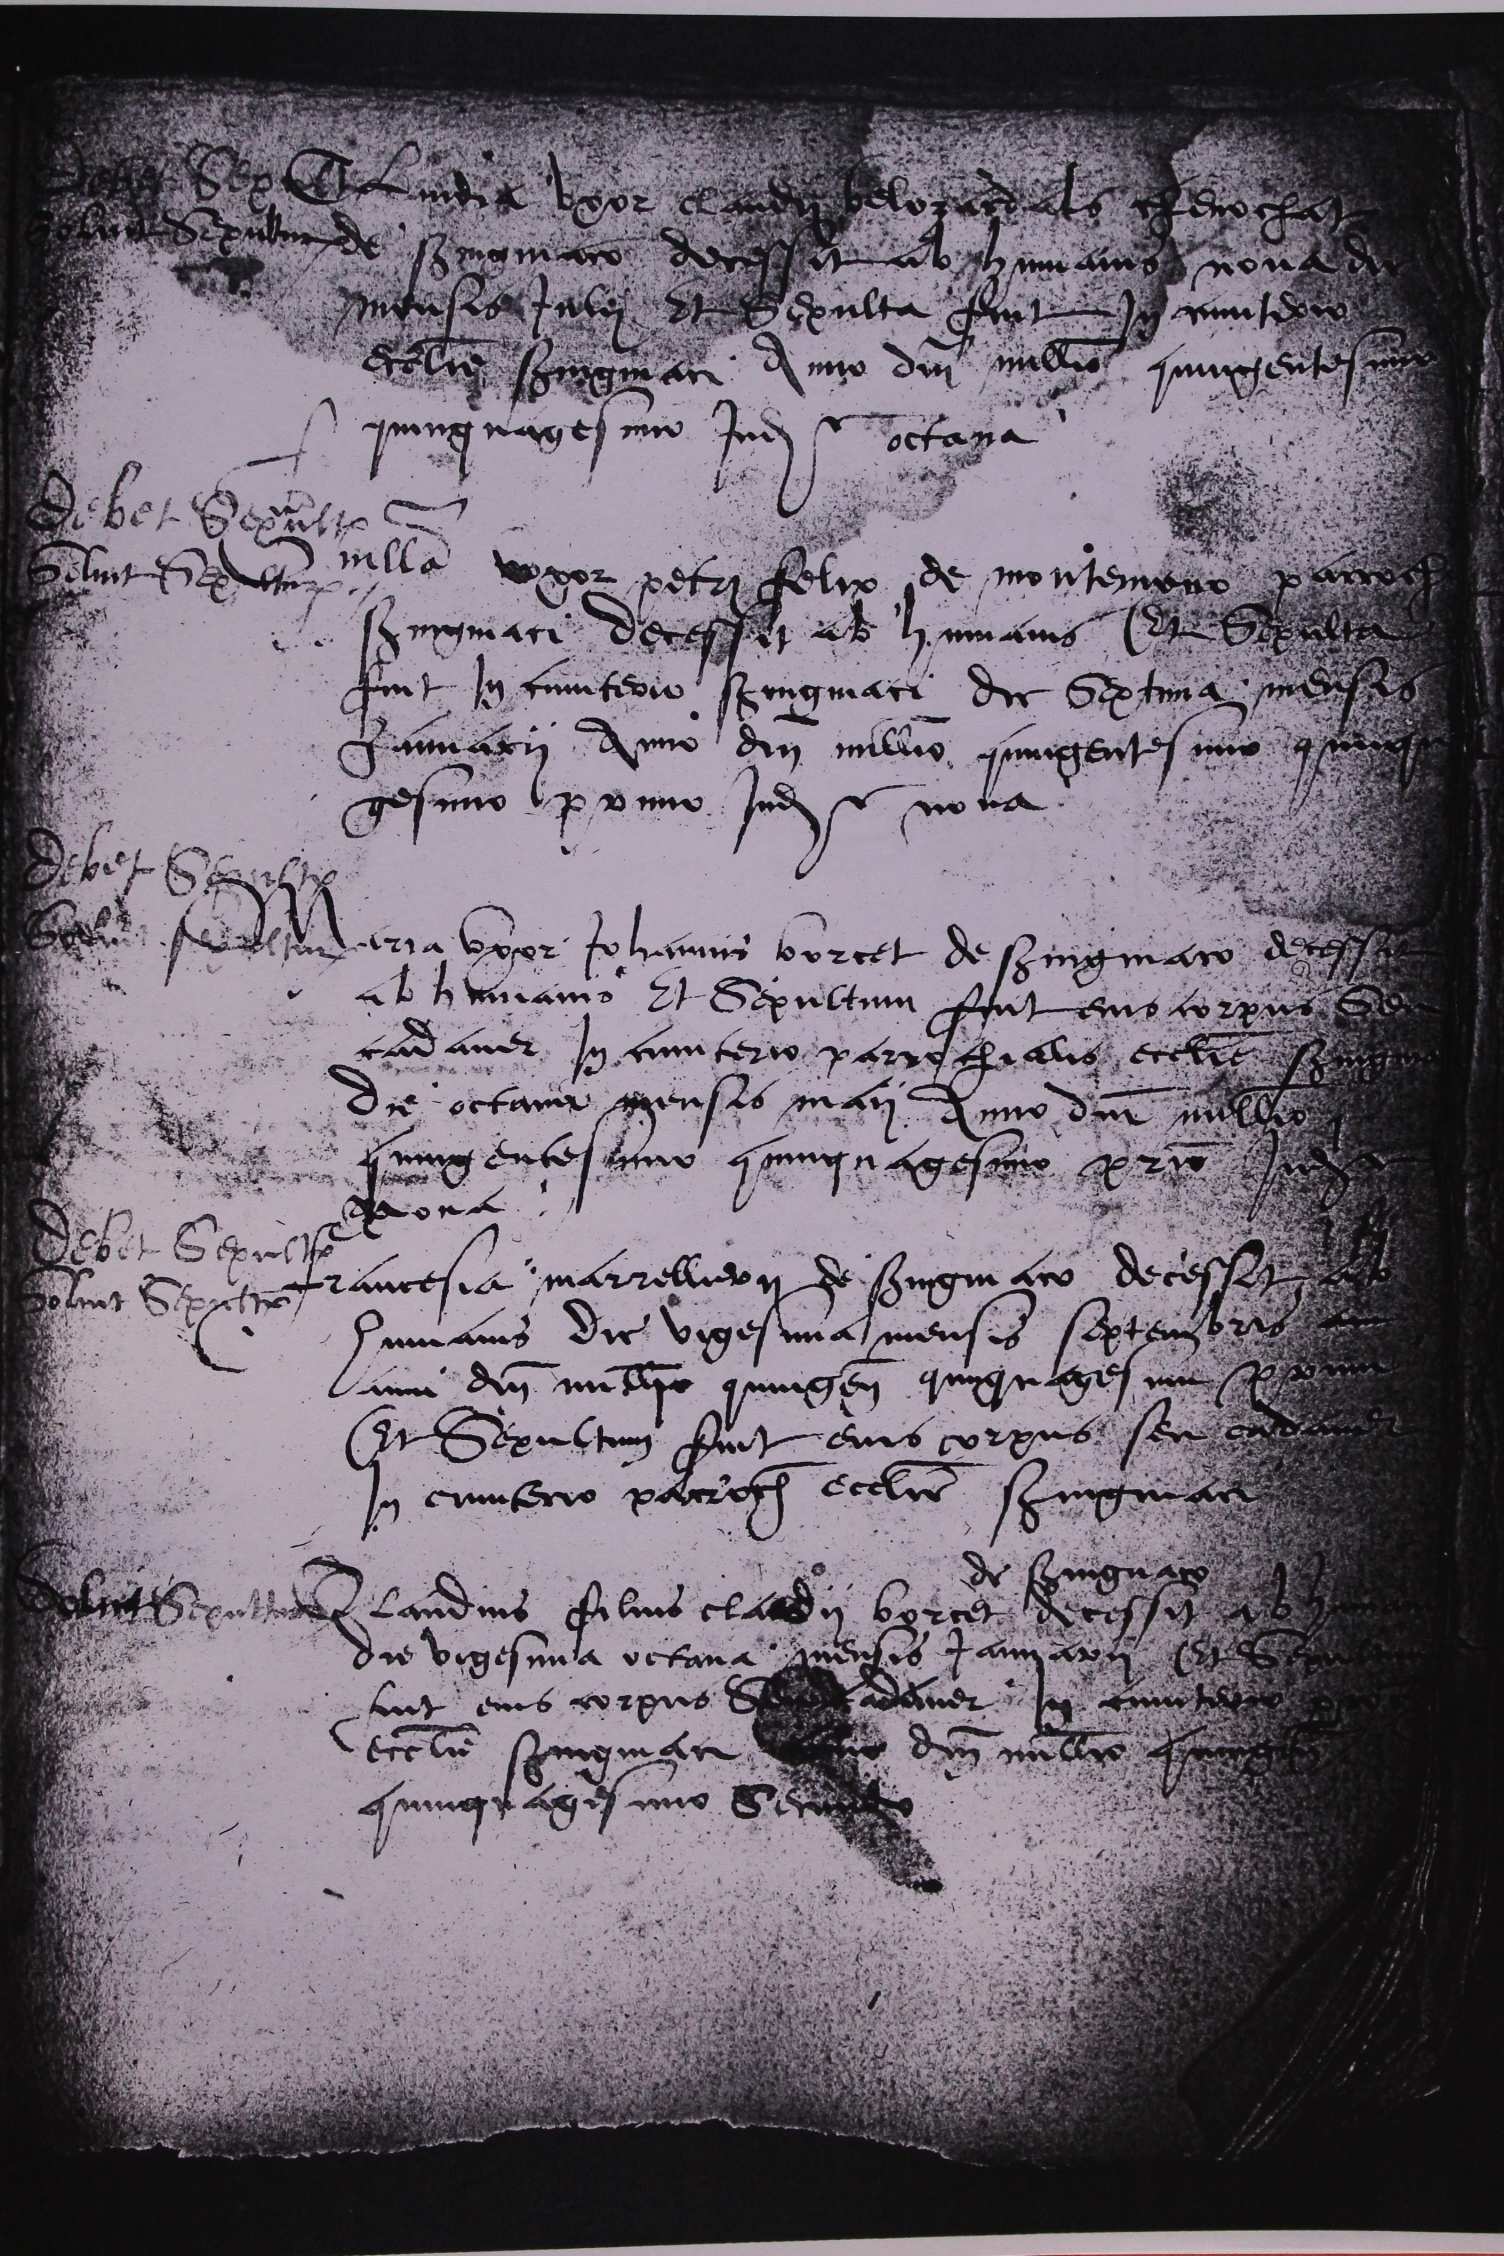 Debet Sep
Solvit Sepultur
Claudia uxor claudii belozard als chenochat
de Szingniaco decessit ab humanis nona die
mensis Julii Et Sepulta fuit In cimiterio
ecclie Szingniaci Anno dni millio quingentesimo
quinquagesimo Ind octava
Debet Sepult
Solvit Sepultur
uxor petri felix de parroch
Szingniaci decessit ab humanis Et Sepulta
fuit In cimiterio Szingniaci die Septima mensis
Januarii Anno dni millio quingentesimo quinqua
gesimo primo Ind nona
Debet Sepult
Solvit sepultur
Maria uxor Johannis borcet de Szingniaco decessit
ab humanis Et Sepultum fuit eius corpus Seu
cadaver In cimiterio parrochialis ecclie Szingnia
Die octava mensis maii Anno dni millio
quingentesimo quinquagesimo prio Ind
Nona
Debet Sepult
Solvit Sepultur
francesia de Szingniaco decessit ab
humanis die vigesima mensis septembris
anni dni millio quingen quinquagesimi primi
Et Sepultum fuit eius corpus seu cadaver
In cimiterio parroch ecclie Szingniaci
Solvit Sepultur
de Szingniaco
Claudius filius claudii borcet decessit ab humanis
die vigesima octava mensis Januarii Et Sepultum
fuit eius corpus Seu cadaver In cimiterio
ecclie Szingniaci anno dni millio quingen
quinquagesimo Secundo